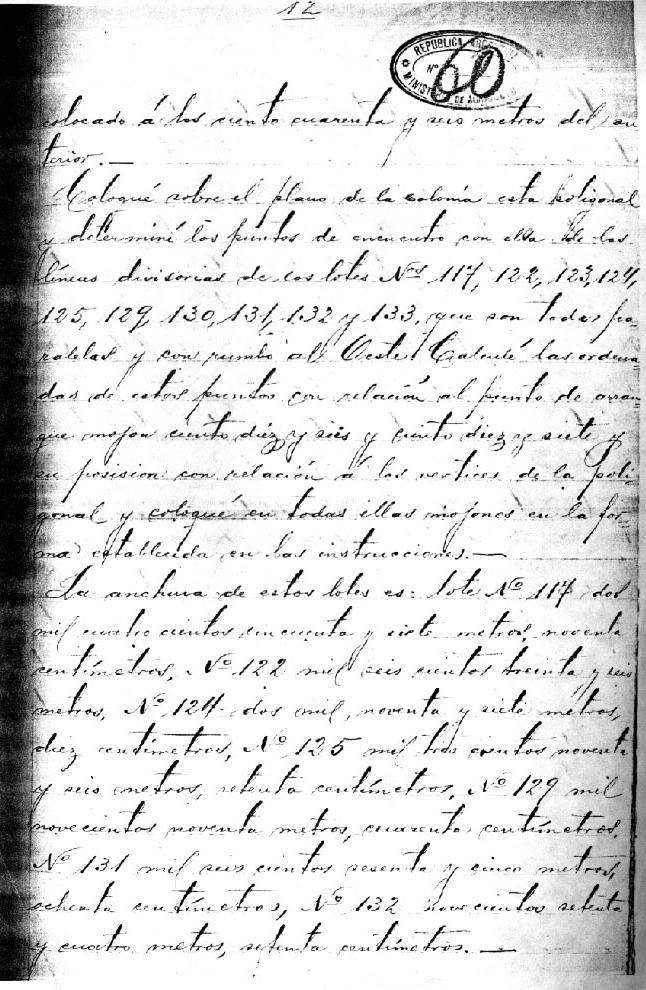 12
REPUBLICA
Nº 60
MINIST DE
colocado á los ciento cuarenta y seis metros del an
terior.—
Coloqué sobre el plano de la colonia esta poligonal
y determiné los puntos de encuentro con ella de las
líneas divisorias de los lotes Nos 117, 122, 123, 124,
125, 129, 130, 131, 132 y 133, que son todas pa-
ralelas y con rumbo al Oeste. Calculé las ordena-
das de estos puntos con relación al punto de arran-
que mojon ciento diéz y seis y ciento diez y siete y
su posision con relación á los vertices de la Poli-
gonal y coloqué en todas ellas mojones en la for-
ma establecida en las instrucciones.—
La anchura de estos lotes es: lote Nº 117 dos
mil cuatro cientos cincuenta y siete metros, noventa
centímetros, Nº 122 mil seis cientos treinta y seis
metros, Nº 124 dos mil, noventa y siete metros,
diez centímetros, Nº 125 mil tres cientos noventa
y seis metros, setenta centímetros, Nº 129 mil
novecientos noventa metros, cuarenta centímetros,
Nº 131 mil seis cientos sesenta y cinco metros,
ochenta centímetros, Nº 132 novecientos setenta
y cuatro metros, setenta centímetros.—